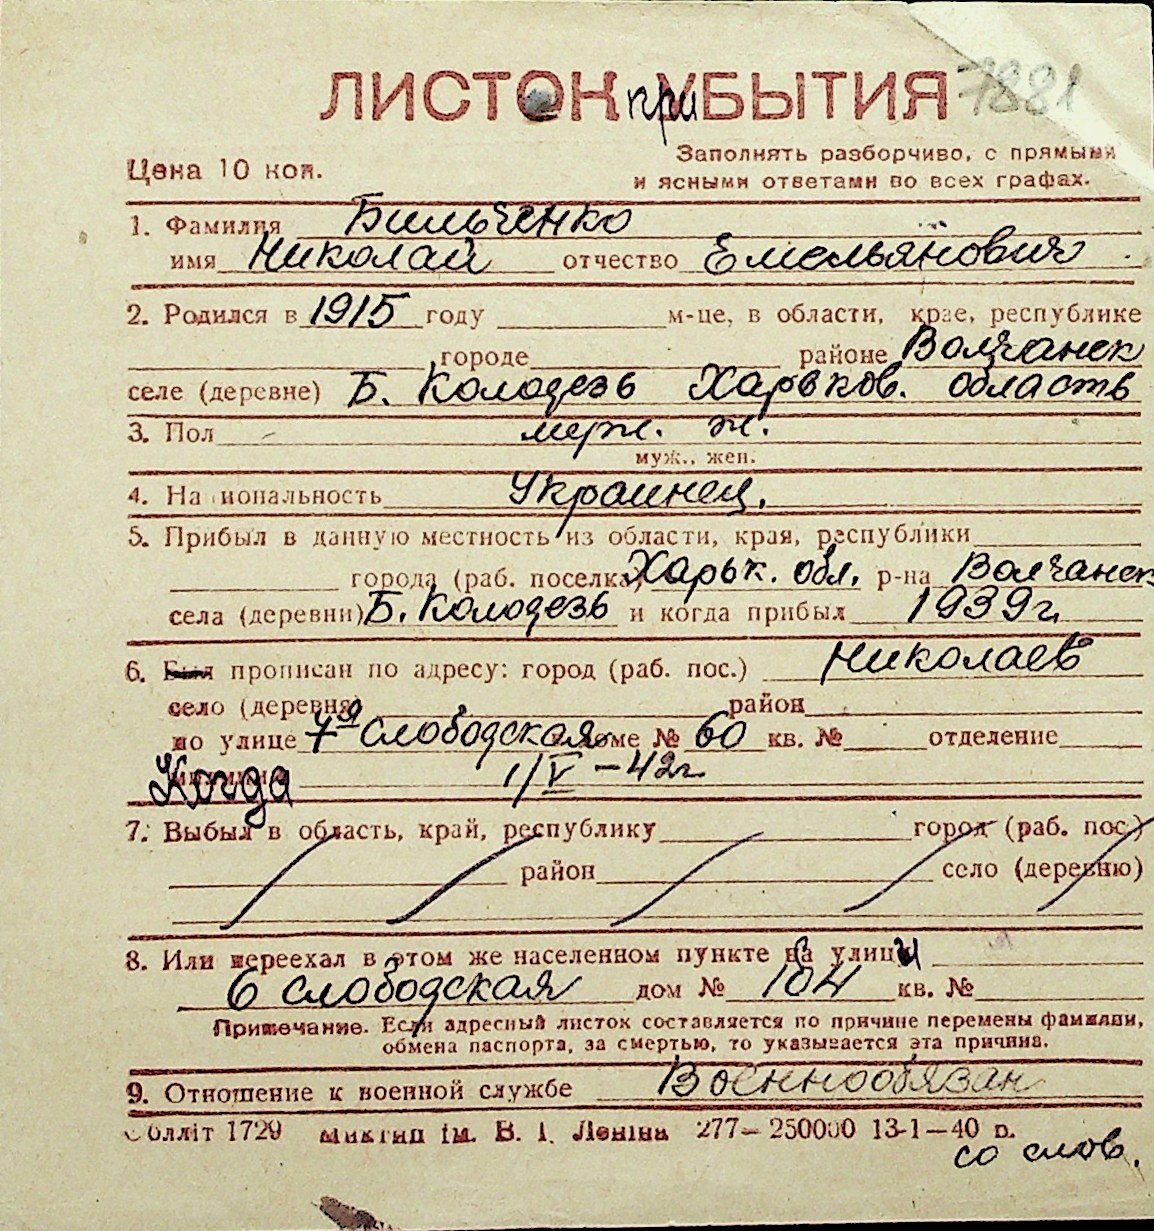 ЛИСТОК при УБЫТИЯ 7881
Цена 10 коп.
Заполнять разборчиво, с прямыми
и ясными ответами во всех графах.
1. Фамилия Бильченко
имя Николай отчество Емельянович
2. Родился в 1915 году м-це, в области, крае, республике
городе районе Волчанск
селе (деревне) Б. Колодезь Харьков. область
3. Пол муж. ж.
муж., жен.
4. Национальность Украинец.
5. Прибыл в данную местность из области, края, республики
города (раб. поселка) Харьк. обл. р-на Волчанск
села (деревни) Б. Колодезь и когда прибыл 1939 г.
6. Был прописан по адресу: город (раб. пос.) Николаев
село (деревня) район
по улице 7я Слободская доме № 60 кв. № отделение
Когда 1/V – 42 г
7. Выбыл в область, край, республику город (раб. пос.)
район село (деревню)
8. Или переехал в этом же населенном пункте на улицы
6 Слободская дом № 104 кв. №
Примечание. Если адресный листок составляется по причине перемены фамилии,
обмена паспорта, за смертью, то указывается эта причина.
9. Отношение к военной службе Военнообязан
Обллiт 1729 iм. В. I. Ленiна 277—250000 13-1—40 р.
со слов.